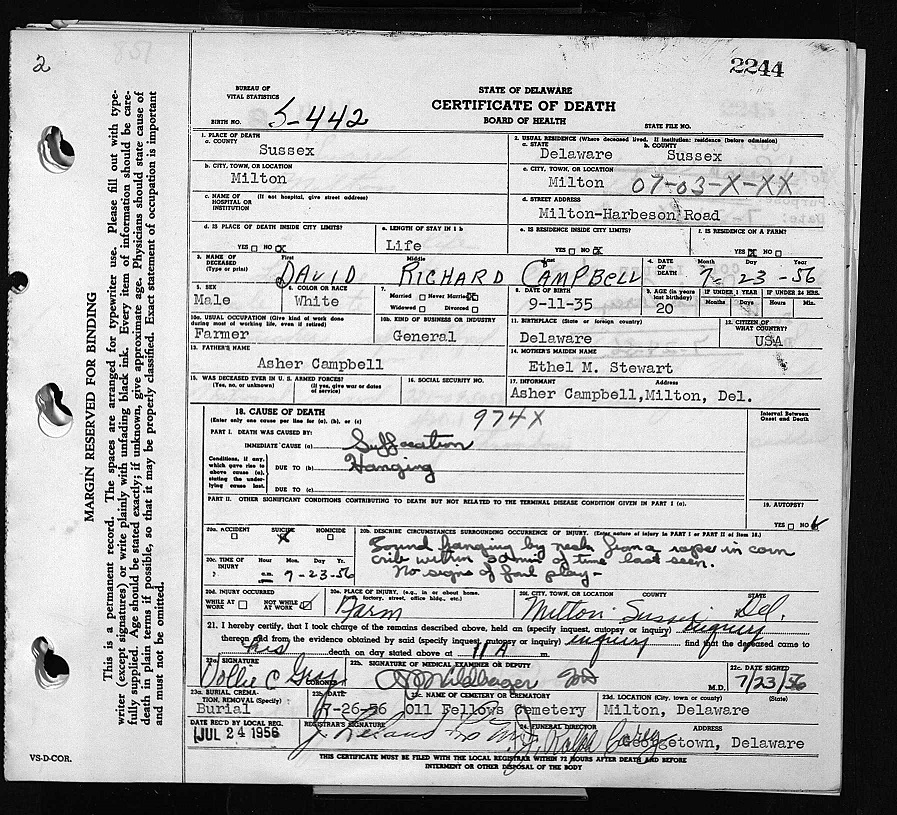 2
2244
BUREAU OF
VITAL STATISTICS
STATE OF DELAWARE
CERTIFICATE OF DEATH
BOARD OF HEALTH
BIRTH NO. S-442
STATE FILE NO.
1. PLACE OF DEATH
a. COUNTY
Sussex
2. USUAL RESIDENCE (Where deceased lived. If institution: residence before admission)
a. STATE b. COUNTY
Delaware Sussex
b. CITY, TOWN, OR LOCATION
Milton
c. CITY, TOWN, OR LOCATION
Milton 07-03-X-XX
c. NAME OF (If not hospital, give street address)
HOSPITAL OR
INSTITUTION
d. STREET ADDRESS
Milton-Harbeson Road
d. IS PLACE OF DEATH INSIDE CITY LIMITS?
YES NO X
e. LENGTH OF STAY IN 1 b
Life
e. IS RESIDENCE INSIDE CITY LIMITS?
YES NO X
f. IS RESIDENCE ON A FARM?
YES X NO
3. NAME OF
DECEASED
(Type or print)
First Middle Last
DAVID RICHARD CAMPBELL
4. DATE
OF
DEATH
Month Day Year
7-23-56
5. SEX
Male
6. COLOR OR RACE
White
7.
Married Never Married X
Widowed Divorced
8. DATE OF BIRTH
9-11-35
9. AGE (In years
last birthday)
20
IF UNDER 1 YEAR
Months Days
IF UNDER 24 HRS.
Hours Min.
10a. USUAL OCCUPATION (Give kind of work done
during most of working life, even if retired)
Farmer
10b. KIND OF BUSINESS OR INDUSTRY
General
11. BIRTHPLACE (State or foreign country)
Delaware
12. CITIZEN OF
WHAT COUNTRY?
USA
13. FATHER'S NAME
Asher Campbell
14. MOTHER'S MAIDEN NAME
Ethel M. Stewart
15. WAS DECEASED EVER IN U. S. ARMED FORCES?
(Yes, no, or unknown) (If yes, give war or dates
of service)
16. SOCIAL SECURITY NO.
17. INFORMANT Address
Asher Campbell,Milton, Del.
18. CAUSE OF DEATH
(Enter only one cause per line for (a), (b), or (c)
974X
Interval Between
Onset and Death
PART I. DEATH WAS CAUSED BY:
IMMEDIATE CAUSE (a) Suffocation
Conditions, if any,
which gave rise to
above cause (a),
stating the under-
lying cause last.
DUE TO (b) Hanging
DUE TO (c)
PART II. OTHER SIGNIFICANT CONDITIONS CONTRIBUTING TO DEATH BUT NOT RELATED TO THE TERMINAL DISEASE CONDITION GIVEN IN PART I (a).
19. AUTOPSY?
YES NO
20a. ACCIDENT SUICIDE HOMICIDE
X
20b. DESCRIBE CIRCUMSTANCES SURROUNDING OCCURRENCE OF INJURY. (Enter nature of injury in PART I or PART II of Item 18.)
Found hanging by neck from a rope in corn
crib within 30 min of time last seen.
No signs of foul play-
20c. TIME OF
INJURY
Hour Mon. Day Yr.
a.m.
p.m.
7-23-56
20d. INJURY OCCURRED
WHILE AT
WORK
NOT WHILE
AT WORK
20e. PLACE OF INJURY, (e.g., in or about home,
farm, factory, street, office bldg., etc.)
Farm
20f. CITY, TOWN, OR LOCATION COUNTY STATE
Milton Sussex Del.
21. I hereby certify, that I took charge of the remains described above, held an (specify inquest, autopsy or inquiry) inquiry
thereon and from the evidence obtained by said (specify inquest, autopsy or inquiry) inquiry find that the deceased came to
his death on day stated above at 11 A m
22a. SIGNATURE
Vollie C Gray
CORONER
22b. SIGNATURE OF MEDICAL EXAMINER OR DEPUTY
M.D.
22c. DATE SIGNED
7/23/56
23a. BURIAL, CREMA-
TION, REMOVAL (Specify)
Burial
23b. DATE
7-26-56
23c. NAME OF CEMETERY OR CREMATORY
Oll Fellows Cemetery
23d. LOCATION (City, town or county) (State)
Milton, Delaware
DATE REC'D BY LOCAL REG.
JUL 24 1956
REGISTRAR'S SIGNATURE
24. FUNERAL DIRECTOR
ADDRESS
Georgetown, Delaware
THIS CERTIFICATE MUST BE FILED WITH THE LOCAL REGISTRAR WITHIN 72 HOURS AFTER DEATH AND BEFORE
INTERMENT OR OTHER DISPOSAL OF THE BODY
MARGIN RESERVED FOR BINDING
This is a permanent record. The spaces are arranged for typewriter use. Please fill out with type-
writer (except signatures) or write plainly with unfading black ink. Every item of information should be care-
fully supplied. Age should be stated exactly; if unknown, give approximate age. Physicians should state cause of
death in plain terms if possible, so that it may be properly classified. Exact statement of occupation is important
and must not be omitted.
VS-D-COR.